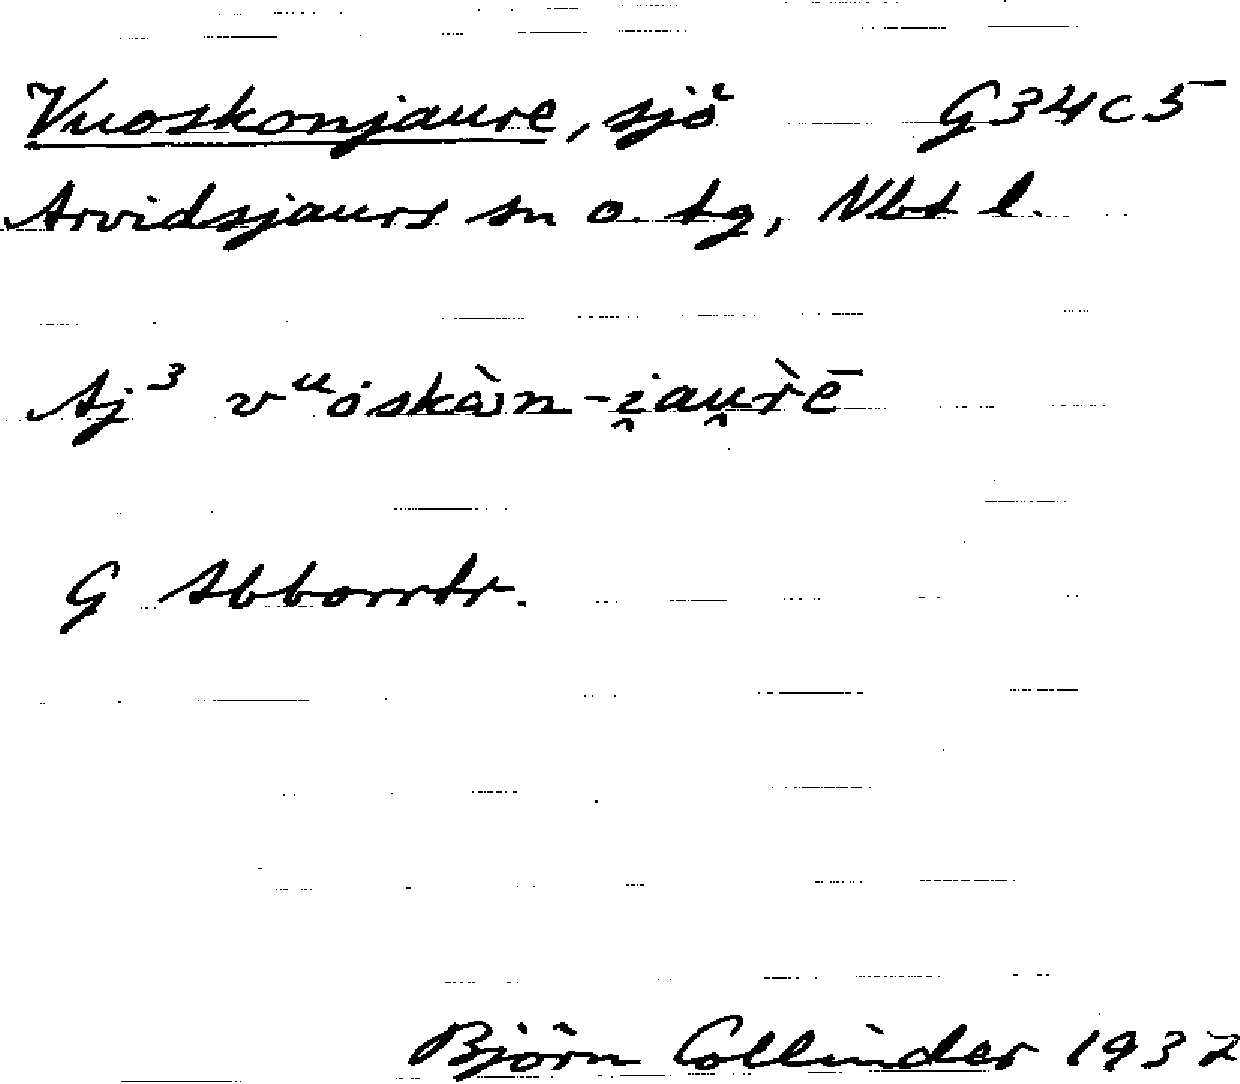 Vuoskonjaure, sjö G34c5
Arvidsjaurs sn o. tg, Nbt l.
Aj³ vᵘȯskὰn-i̯au̯r̀ē
G Abborrtr.
Björn Collinder 1937